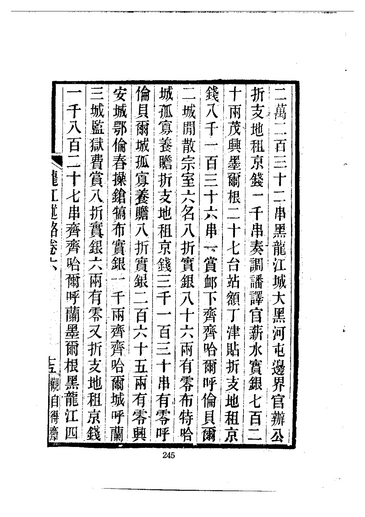 二萬二百三十二串黑龍江城大黑河屯邊界官辦公
折支地租京錢一千串奏調繙譯官薪水實銀七百二
十兩茂興墨爾根二十七台站領丁津貼折支地租京
錢八千一百三十六串一賞䘏下齊齊哈爾呼倫貝爾
二城閒散宗室六名八折實銀八十六兩有零布特哈
城孤寡養贍折支地租京錢三千一百三十串有零呼
倫貝爾城孤寡養贍八折實銀二百六十五兩有零興
安城鄂倫春操鎗犒布實銀一千兩齊齊哈爾城呼蘭
三城監獄費賞八折實銀六兩有零又折支地租京錢
一千八百二十七串齊齊哈爾呼蘭墨爾根黑龍江四
龍江述略卷六
十五
觀自得齋
245